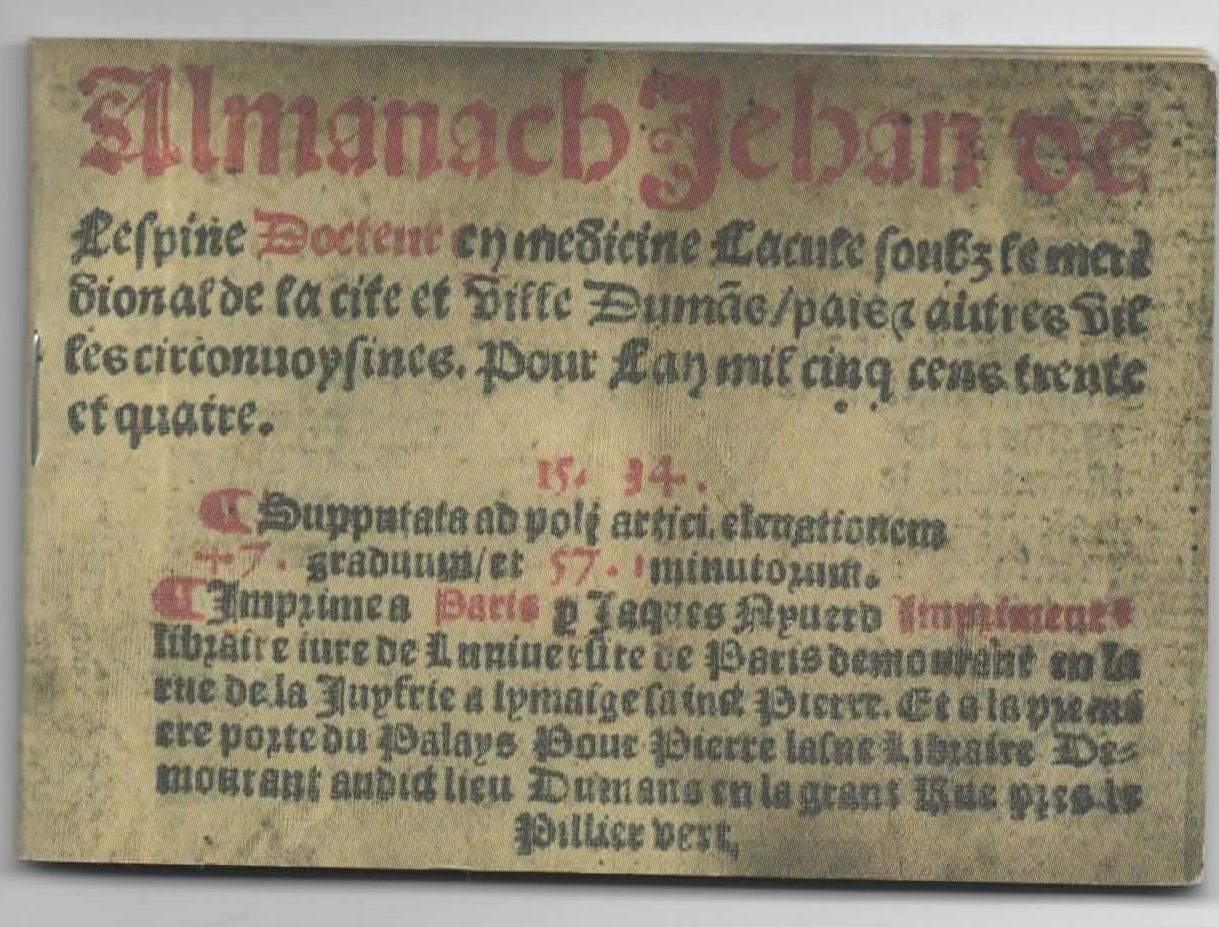 Almanach Jehan de
Lespine Docteur en medicine Lacule soubz le meri
dional de la cite et ville Dumãs/pais ⁊ autres vil
les circonuoysines. Pour Lan mil cinq cens trente
et quatre.
15. 34.
¶ Supputata ad poli artici. eleuationem
47. graduum/et 57. minutorum.
¶ Imprime a Paris ꝑ Jaques Nyuerd Imprimeur ⁊
libraire iure de Luniuersite de Paris demourant en la
rue de la Juyfrie a lymaige sainct Pierre. Et a la premi
ere porte du Palays Pour Pierre lasne Libraire De-
mourant audict lieu Dumans en la grant Rue pres le
Pillier vert,